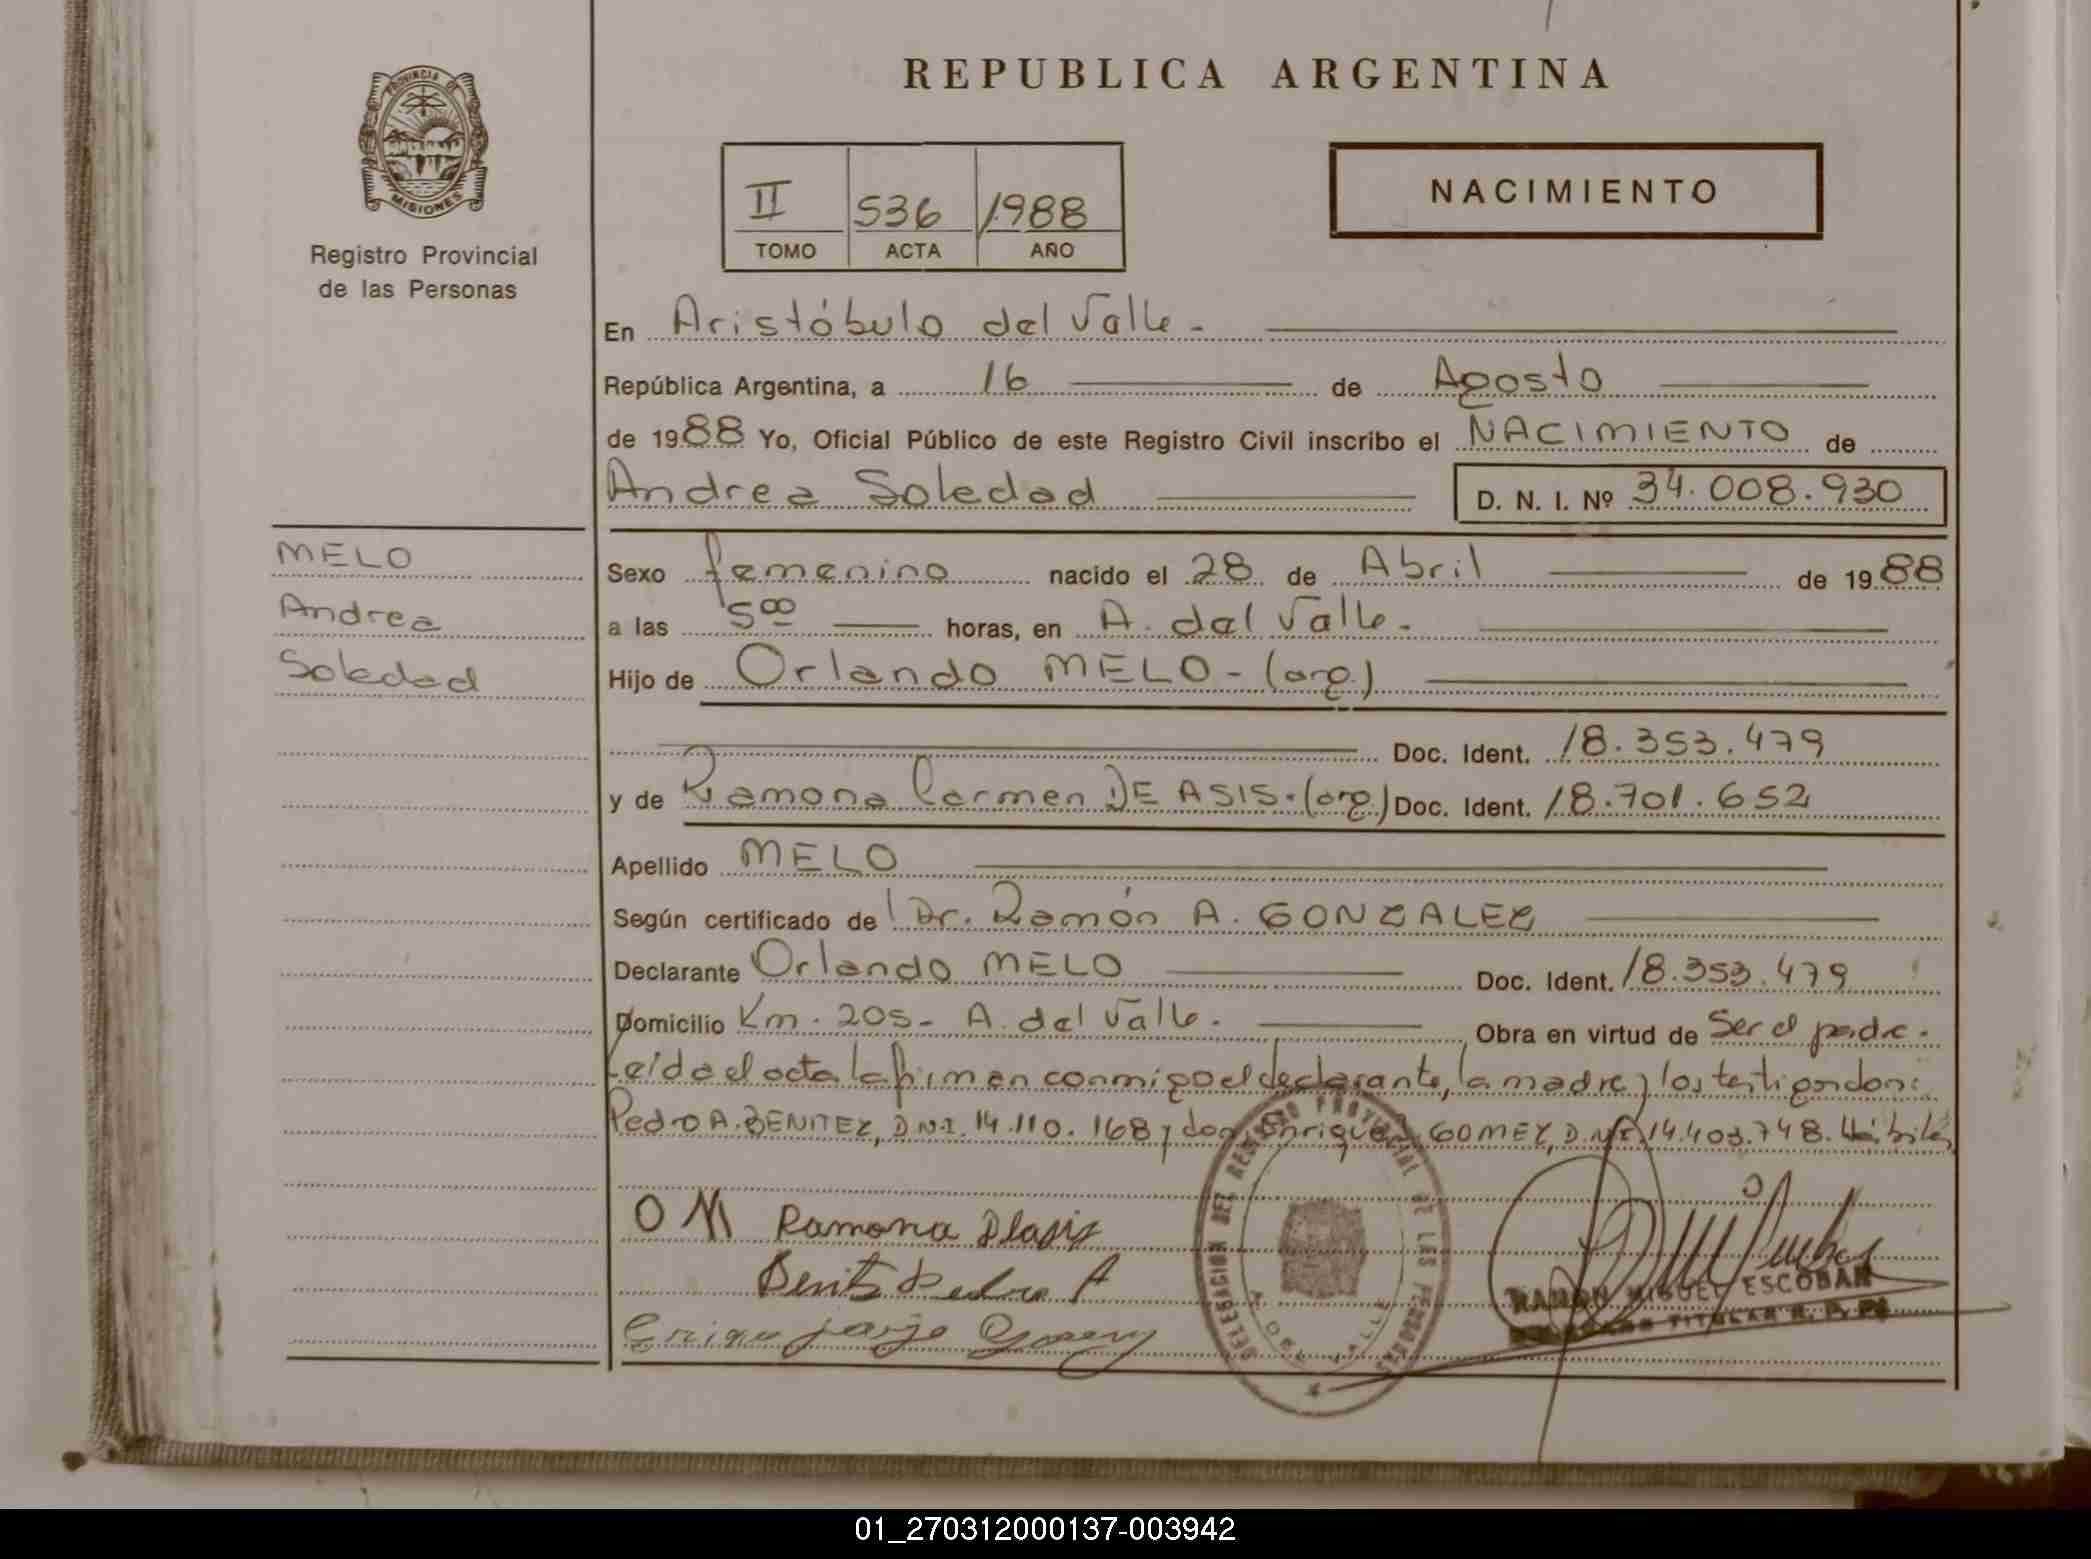 REPUBLICA ARGENTINA
PROVINCIA DE
MISIONES
Registro Provincial
de las Personas
II 536 1988
TOMO ACTA AÑO
NACIMIENTO
En Aristóbulo del Valle.-
República Argentina, a 16 de Agosto
de 1988 Yo, Oficial Público de este Registro Civil inscribo el NACIMIENTO de
Andrea Soledad D. N. I. Nº 34.008.930
MELO
Andrea
Soledad
Sexo femenino nacido el 28 de Abril de 1988
a las 5 00 horas, en A. del Valle.
Hijo de Orlando MELO - (arg.)
Doc. Ident. 18.353.479
y de Ramona Carmen DE ASIS. (arg.) Doc. Ident. 18.701.652
Apellido MELO
Según certificado de Dr. Ramón A. GONZALEZ
Declarante Orlando MELO Doc. Ident. 18.353.479
Domicilio Km. 205- A. del Valle. Obra en virtud de Ser el padre.
Leída el acta la firman conmigo el declarante, la madre y los testigos don:
Pedro A. BENITEZ, D.N.I. 14.110.168 y don Enrique GOMEZ, D.N.I. 14.403.748. Hábiles
O M Ramona
Benitez Pedro A
DELEGACION DEL REGISTRO PROVINCIAL DE LAS PERSONAS
A. DEL VALLE
RAMON MIGUEL ESCOBAR
TITULAR R. P. P.
01_270312000137-003942